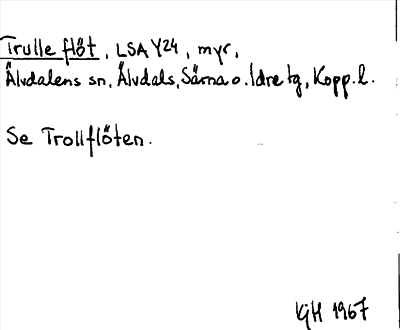 Trulle flöt, LSA Y24, myr,
Älvdalens sn, Älvdals, Särna o. Idre tg, Kopp. l.
Se Trollflöten.
KGH 1967